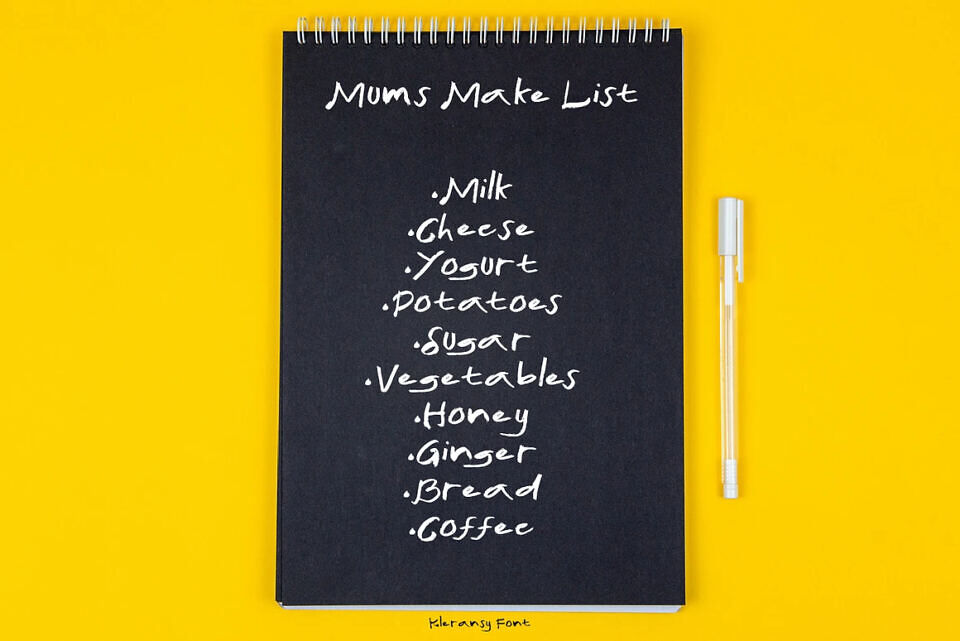 Mums Make List
.Milk
.Cheese
.Yogurt
.Potatoes
.Sugar
.Vegetables
.Honey
.Ginger
.Bread
.Coffee
Kleransy Font